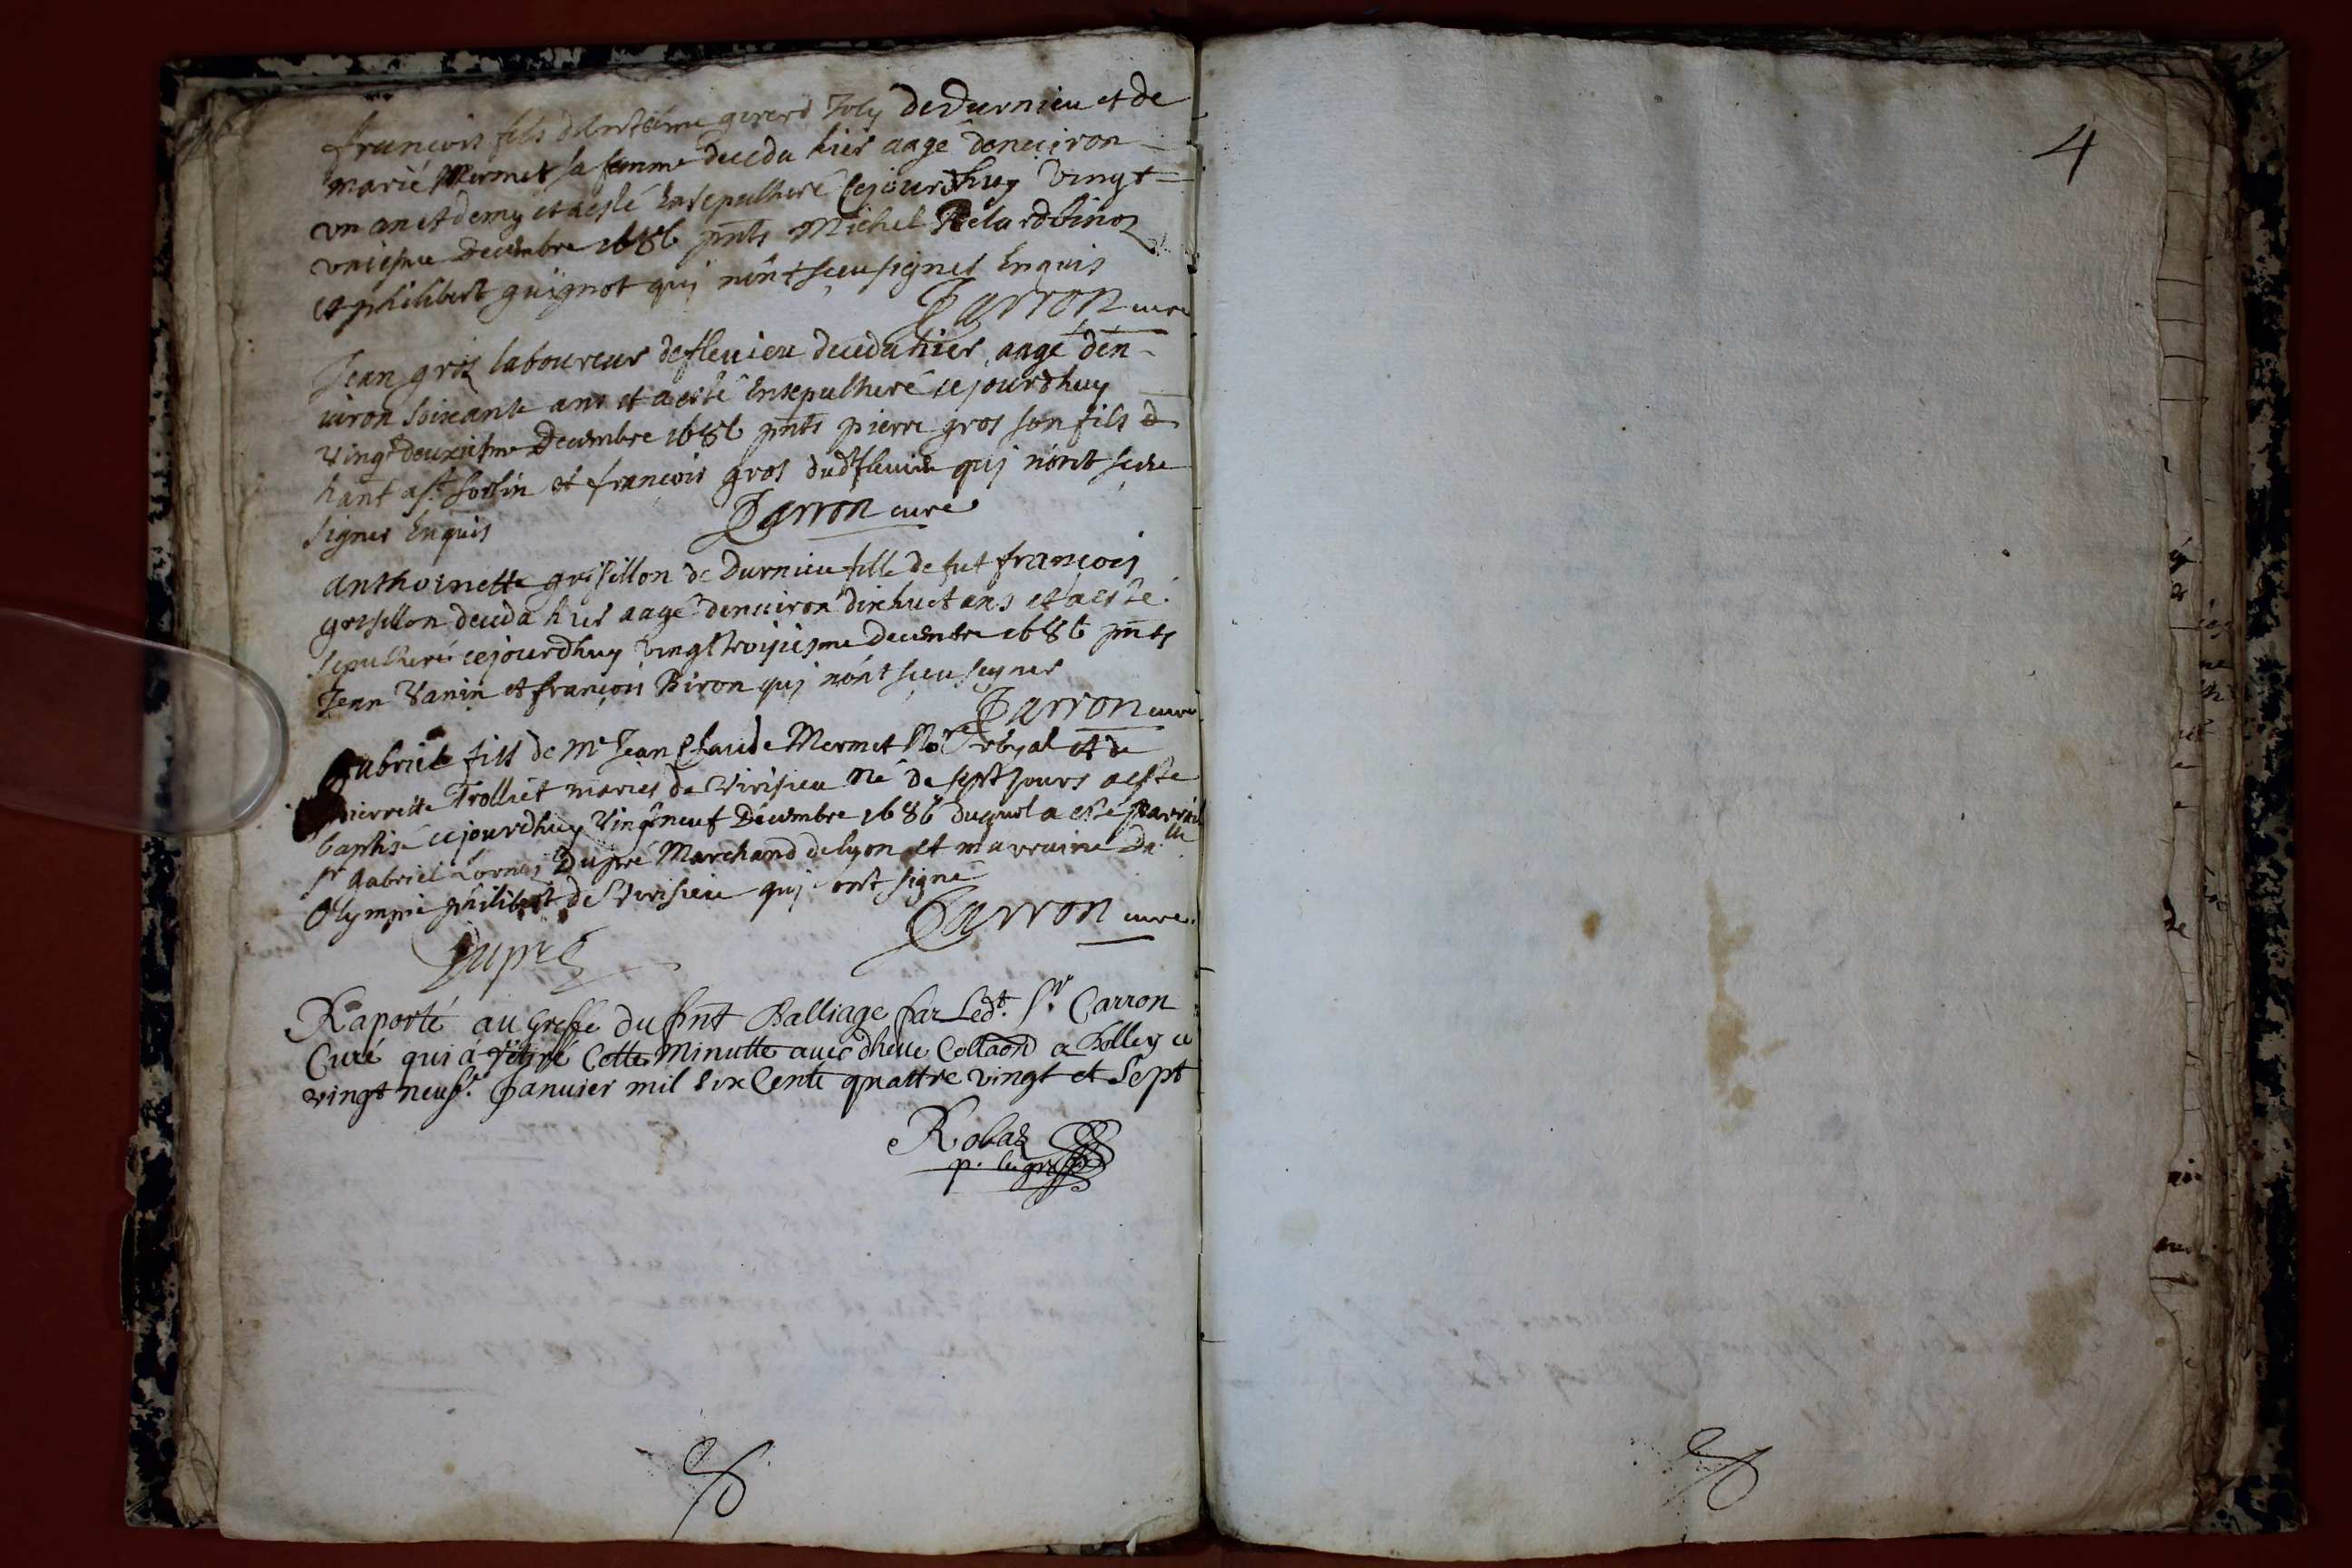 françois fils dAntelme gererd Joly de Durnieu et de
marie Mermet sa femme deceda hier aagé denuiron
vn an et demy et aesté Ensepulheré Cejourdhuy vingt
vniesme Decembre 1686 pnts Michel Relard
et philibert guignot quj nont sceu signer Enquis
Carron curé
Jean gros laboureur de fleuieu deceda hier aagé den-
uiron soixante ans et aesté Ensepulheré cejourdhuy
vingt deuxiesme Decembre 1686 pnts pierre gros son fils
hant a st sorlin et françois gros dud fleuieu quj nont sceu
signer Enquis Carron curé
anthoinette grisillon de Durnieu fille de fut françois
grisillon deceda hier aagé denuiron dixhuet ans et aesté
sepulheré cejourdhuy vingt troisiesme Decembre 1686 pnts
Jean Vanin et françois Biron quj nont sceu signer
Carron curé
Gabriele fils de Me Jean Claude Mermet Nore royal et de
pierrette Trolliet mariés de Virisieu né de sept jours aeste
baptisé cejourdhuy vingt neuf Décembre 1686 duquel a esté parrain
sr gabriel Dupré Marchand de lyon et marraine Dalle
Olympie philibert de Virisieu quj ont signé
Carron curé
Dupré
Raporté au Greffe du pnt Balliage par Ledt. Sr Carron
Curé qui à retiré Cette Minutte auec dheue Collaon a Belley ce
vingt neufe. Januier mil Six Cents quattre vingt et Sept
p. le greffe
4